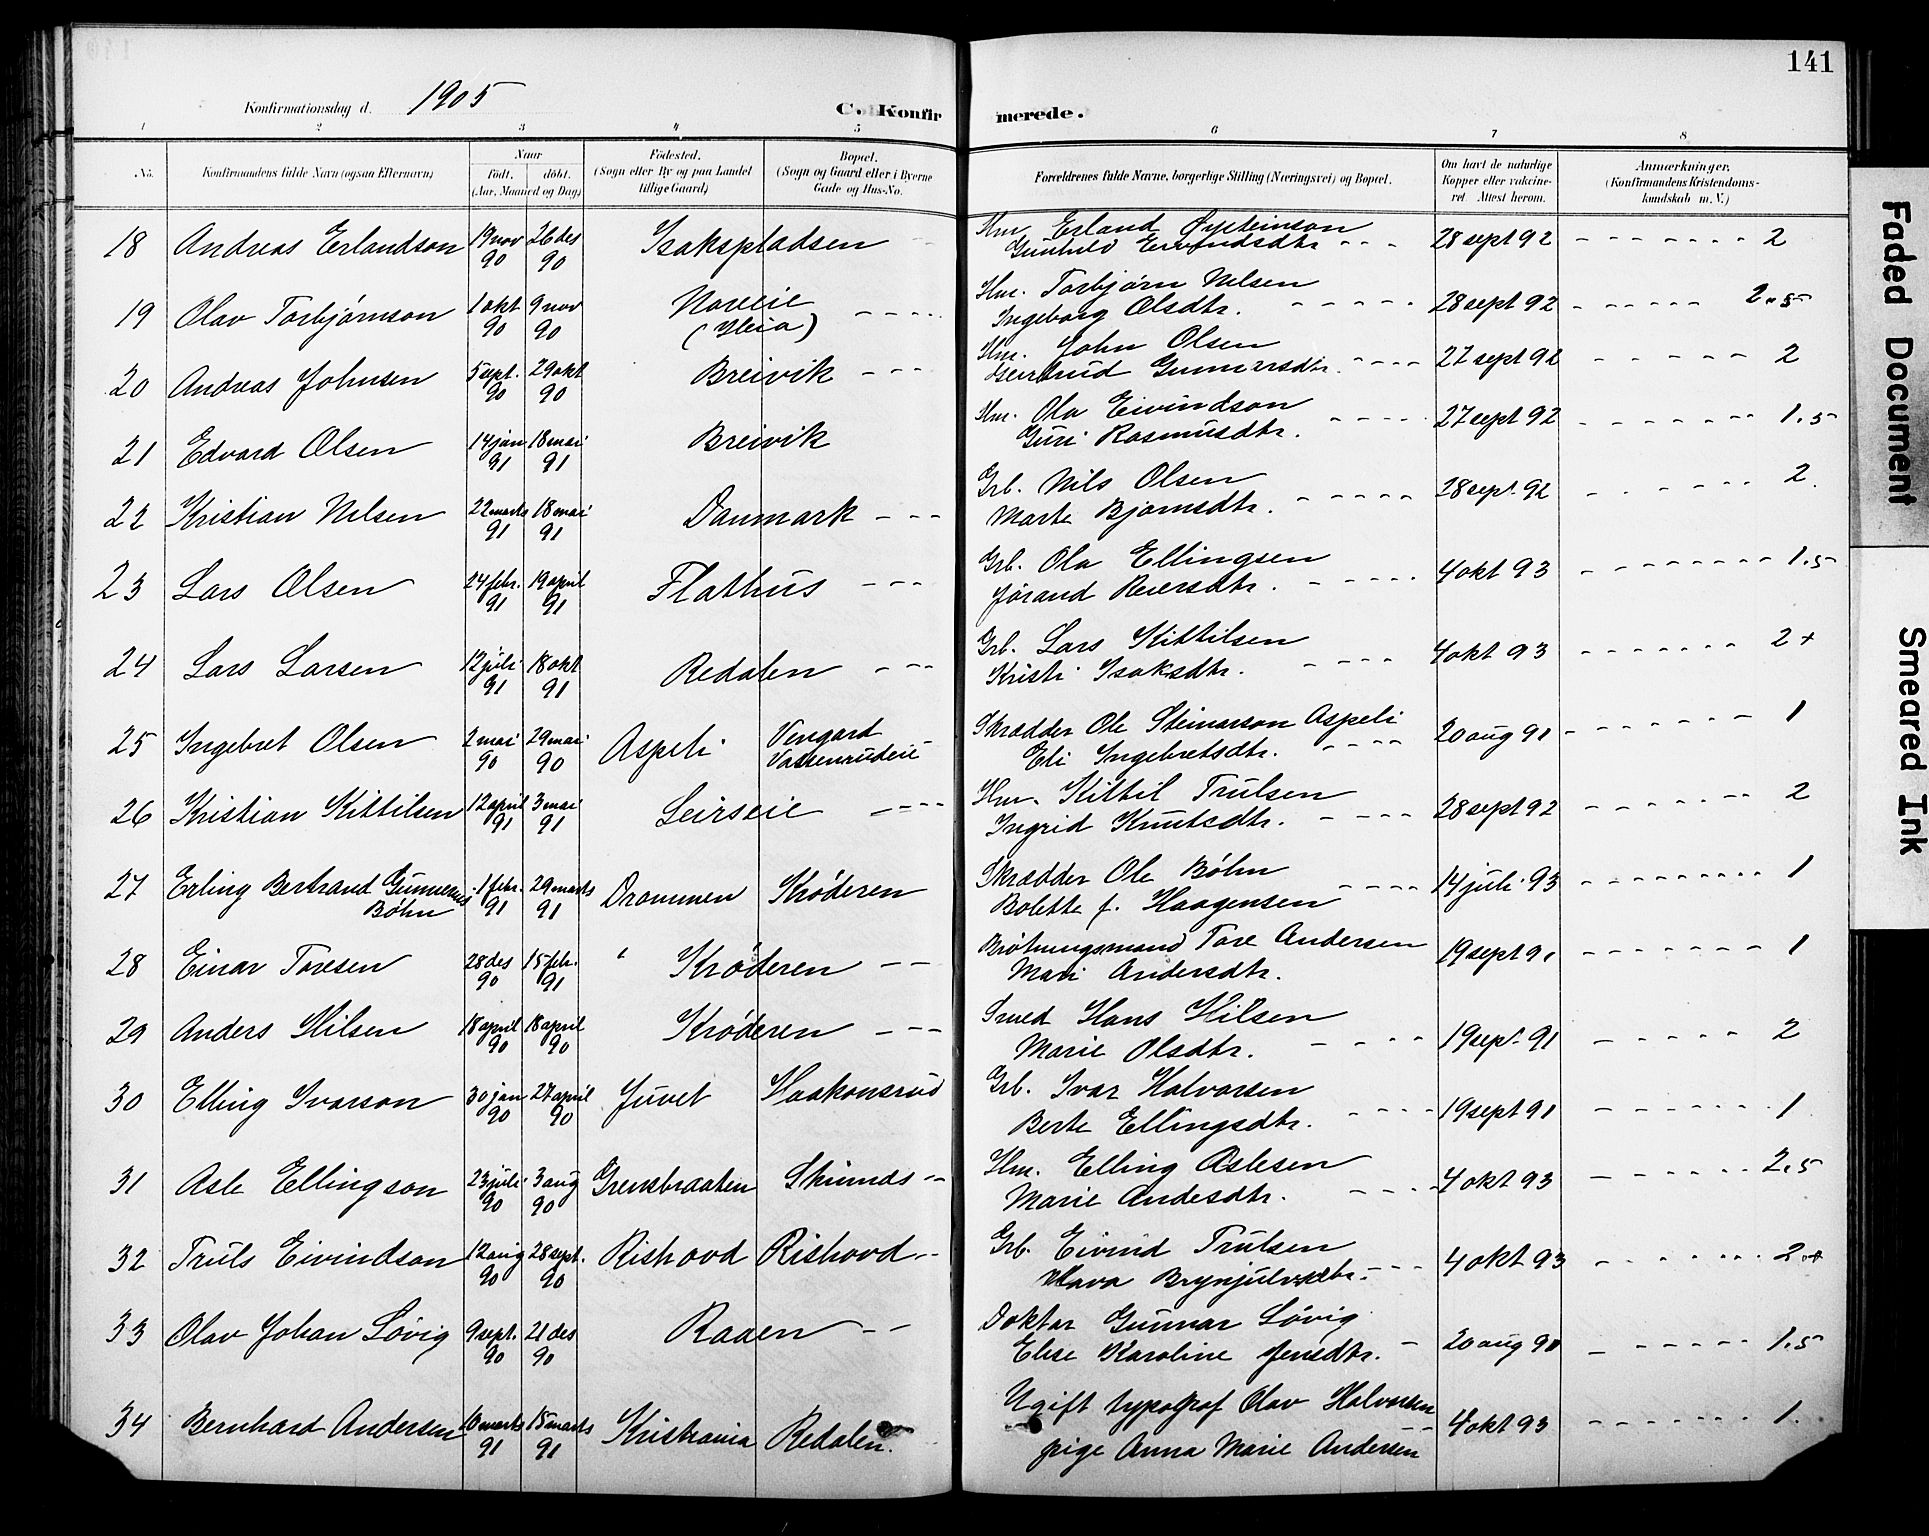 141
Konfirmationsdag d. 1905
C. Konfirmerede.
1 2 3 4 5 6 7 8
No. Konfirmandens fulde Navn (ogsaa Efternavn) Naar Født. døbt. (Aar, Maaned og Dag) Fødested. (Sogn eller By og paa Landet tillige Gaard) Bopæl. (Sogn og Gaard eller i Byerne Gade og Hus-No. Forældrenes fulde Navne, borgerlige Stilling (Næringsvei) og Bopæl. Om havt de naturlige Kopper eller vaccineret. Attest herom. Anmærkninger. (Konfirmandens Kristendomskundskab m. V.)
18 Andreas Erlandson 19 nov 90 26 des 90 Isakspladsen Hm. Erland Øysteinson
Gunhild Eivindsdtr 28 sept 92 2
19 Olav Torbjørnson 1 okt 90 9 nov 90 Noreeie (Ileia) Hm. Torbjørn Nilsen
Ingeborg Olsdtr. 28 sept 92 2.5
20 Andreas Johnsen 5 sept. 90 29 okt 90 Breivik Hm. John Olsen
Gjertrud Gunnarsdtr. 27 sept 92 2
21 Edvard Olsen 14 jan 91 18 mai 91 Breivik Hm. Ola Eivindson
Guri Rasmusdtr. 27 sept 92 1.5
22 Kristian Nilsen 22 marts 91 18 mai 91 Danmark Grb. Nils Olsen
Marte Bjørnsdtr. 28 sept. 92 2.
23 Lars Olsen 24 febr. 91 19 april 91 Flathus Grb. Ola Ellingsen
Jørand Reiersdtr. 4 okt 93 1.5
24 Lars Larsen 12 juli 91 18 okt 91 Redalen Grb. Lars Kittilsen
Kristi Isaksdtr. 4 okt 93 2+
25 Ingebret Olsen 2 mai 90 29 mai 90 Aspeli Vengard Vassenrudeie Skrædder Ole Steinarson Aspeli
Eli Ingebretsdtr. 20 aug 91 1
26 Kristian Kittilsen 12 april 91 3 mai 91 Leirseie Hm. Kittil Trulsen
Ingrid Knutsdtr. 28 sept 92 2
27 Erling Bertrand Gunnerius Bøhn 1 febr. 91 29 marts 91 Drammen Krøderen Skrædder Ole Bøhn
Bolette f. Haagensen 14 juli 93 1
28 Einar Toresen 28 des 90 15 febr. 91 Krøderen Brøtningsmand Tore Andersen
Mari Andersdtr. 19 sept 91 1
29 Anders Hilsen 18 april 90 18 april 90 Krøderen Smed Hans Hilsen
Marie Olsdtr. 19 sept. 91 2
30 Elling Ivarson 30 jan 90 27 april 90 Juvet Haakonsrud Grb. Ivar Halvorsen
Berte Ellingsdtr. 19 sept 91 1
31 Asle Ellingson 23 juli 90 3 aug 90 Grensbraaten Skinnds Hm. Elling Aslesen
Marie Andesdtr. 4 okt 93 2.5
32 Truls Eivindson 12 aug 90 28 sept. 90 Rishovd Rishovd Grb. Eivind Trulsen
Mava Brynjulvsdtr. 4 okt 93 2+
33 Olav Johan Løvig 9 sept. 90 21 des 90 Raaen Doktor Gunnar Løvig
Elise Karoline Jensdtr. 20 aug 91 1.5
34 Bernhard Andersen 16 marts 91 15 marts 91 Kristiania Redalen. Ugift typograf Olav Halvorsen
pige Anna Marie Andersen 4 okt 93 1.
Faded Document
Smeared Ink